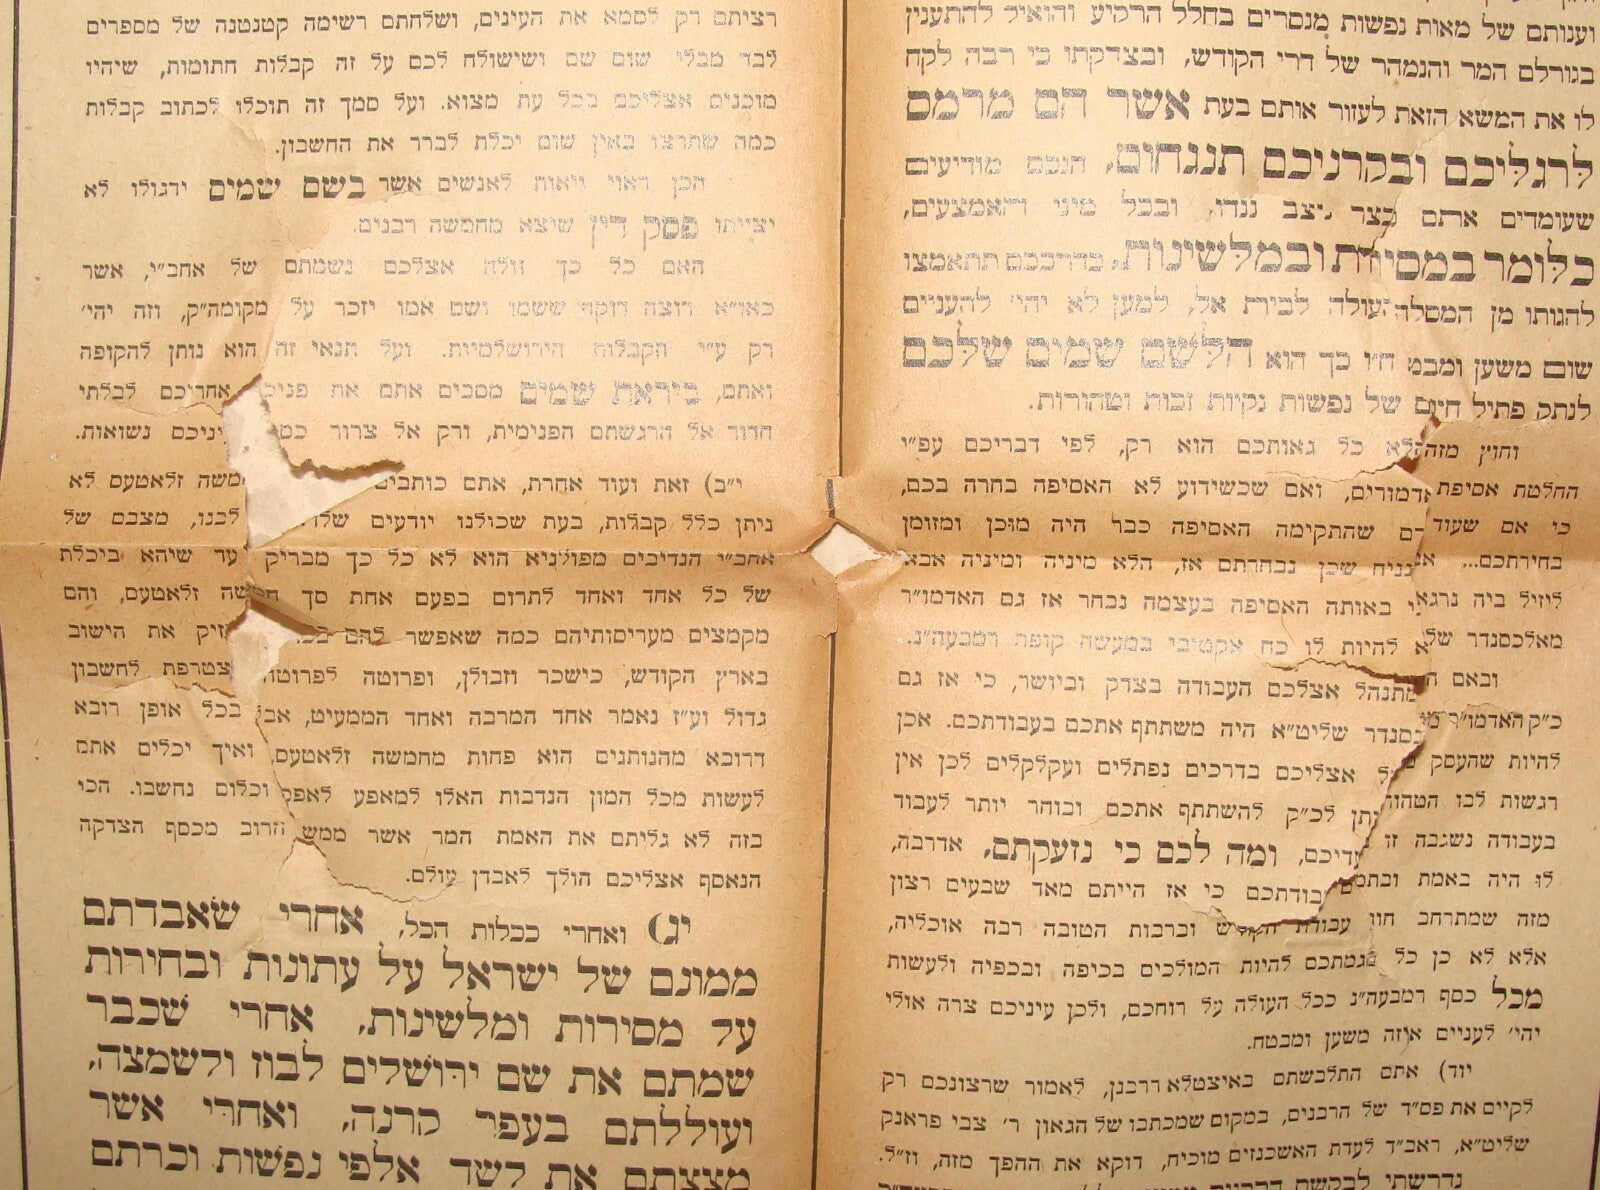 וענותם של מאות נפשות מנוסרים בחלל הרקיע והואיל להתענין
בגורלם המר והנמהר של דרי הקודש, ובצדקתו כי רבה לקח
לו את המשא הזאת לעזור אותם בעת אשר הם מרמס
לרגליכם ובקרניכם תנגחום, הנכם מודיעים
שעומדים אתם כצר ניצב נגדו, ובכל מיני האמצעים,
כלומר במסירת ובמלשינות, בחייכם תתאמצו
להטותו מן המסלה העולה לבית אל, למען לא יהי׳ להענים
שום משען ומבטח וזו כך הוא הלשם שמים שלכם
לנתק פתיל חיים של נפשות נקיות וזכות וטהורות.
וחוץ מזה הלא כל גאותכם הוא רק, לפי דבריכם עפ״י
החלטת אסיפת אדמורים, ואם שכשידוע לא האסיפה בחרה בכם,
כי אם שעוד שהתקימה האסיפה כבר היה מוכן ומזומן
בחירתכם... נניח שכן נבחרתם אז, הלא מיניה ומיניה אבא
ליזיל ביה נרגא באותה האסיפה בעצמה נבחר אז גם האדמו״ר
מאלכסנדר להיות לו כח אקטיבי במעשה קופת רמבעה״נ.
ובאם מתנהל אצלכם העבודה בצדק וביושר, כי אז גם
כ״ק האדמו״ר שליט״א היה משתתף אתכם בעבודתכם. אכן
להיות שהעסק אצליכם בדרכים נפתלים ועקלקלים לכן אין
רגשות לבו הטהור נתן לכ״ק להשתתף אתכם ובוחר יותר לעבוד
בעבודה נשגבה זו ומה לכם כי נזעקתם, אדרבה,
לו היה באמת כי אז הייתם מאד שבעים רצון
מזה שמתרחב עבודת הקודש וברבות הטובה רבה אוכליה,
אלא לא כן כל מגמתכם להיות המולכים בכיפה ובכפיה ולעשות
מכל כסף רמבעה״נ ככל העולה על רוחכם, ולכן עיניכם צרה אולי
יהי׳ לעניים איזה משען ומבטח.
יוד) אתם התלבשתם באיצטלא דרבנן, לאמור שרצונכם רק
לקיים את פס״ד של הרבנים, במקום שמכתבו של הגאון ר׳ צבי פראנק
שליט״א, ראב״ד לעדת האשכנזים מוכיח, דוקא את ההפך מזה, וז״ל.
נדרשתי לבקשת
רציתם רק לסמא את העינים, ושלחתם רשימה קטנטנה של מספרים
לבד מבלי שום שם ושישולח לכם על זה קבלות חתומות, שיהיו
מוכנים אצליכם בכל עת מצוא. ועל סמך זה תוכלו לכתוב קבלות
כמה שתרצו באין שום יכלת לברר את החשבון.
הכן ראוי ויאות לאנשים אשר בשם שמים ידגולו לא
יצייתו פסק דין שיצא מחמשה רבנים.
האם כל כך זולה אצלכם נשמתם של אחב״י, אשר
כאו״א רוצה דוקה ששמו ושם אמו יזכר על מקומה״ק, וזה יהי׳
רק ע״י הקבלות הירושלמיות. ועל תנאי זה הוא נותן להקופה
ואתם, ביראת שמים מסבים אתם את אחריכם לבלתי
חדור אל הרגשתם הפנימית, ורק אל צרור נשואות.
י״ב) זאת ועוד אחרת, אתם כותבים זלאטעס לא
ניתן כלל קבלות, בעת שכולנו יודעים לבנו, מצבם של
אחב״י הנדיבים מפולניא הוא לא כל כך מבריק עד שיהא ביכלת
של כל אחד ואחד לתרום בפעם אחת סך חמשה זלאטעס, והם
מקמצים מעריסותיהם כמה שאפשר להם את הישוב
בארץ הקודש, כישכר וזבולן, ופרוטה לפרוטה מצטרפת לחשבון
גדול וע״ז נאמר אחד המרבה ואחד הממעיט, אבל בכל אופן רובא
דרובא מהנותנים הוא פחות מחמשה זלאטעס ואיך יכלים אתם
לעשות מכל המון הנדבות האלו למאפע לאפס וכלום נחשבו. הכי
בזה לא גליתם את האמת המר אשר ממש הרוב מכסף הצדקה
הנאסף אצליכם הולך לאבדן עולם.
יג) ואחרי ככלות הכל, אחרי שאבדתם
ממונם של ישראל על עתונות ובחירות
על מסירות ומלשינות, אחרי שכבר
שמתם את שם ירושלים לבוז ולשמצה,
ועוללתם בעפר קרנה, ואחרי אשר
מצצתם את לשד אלפי נפשות וכרתם